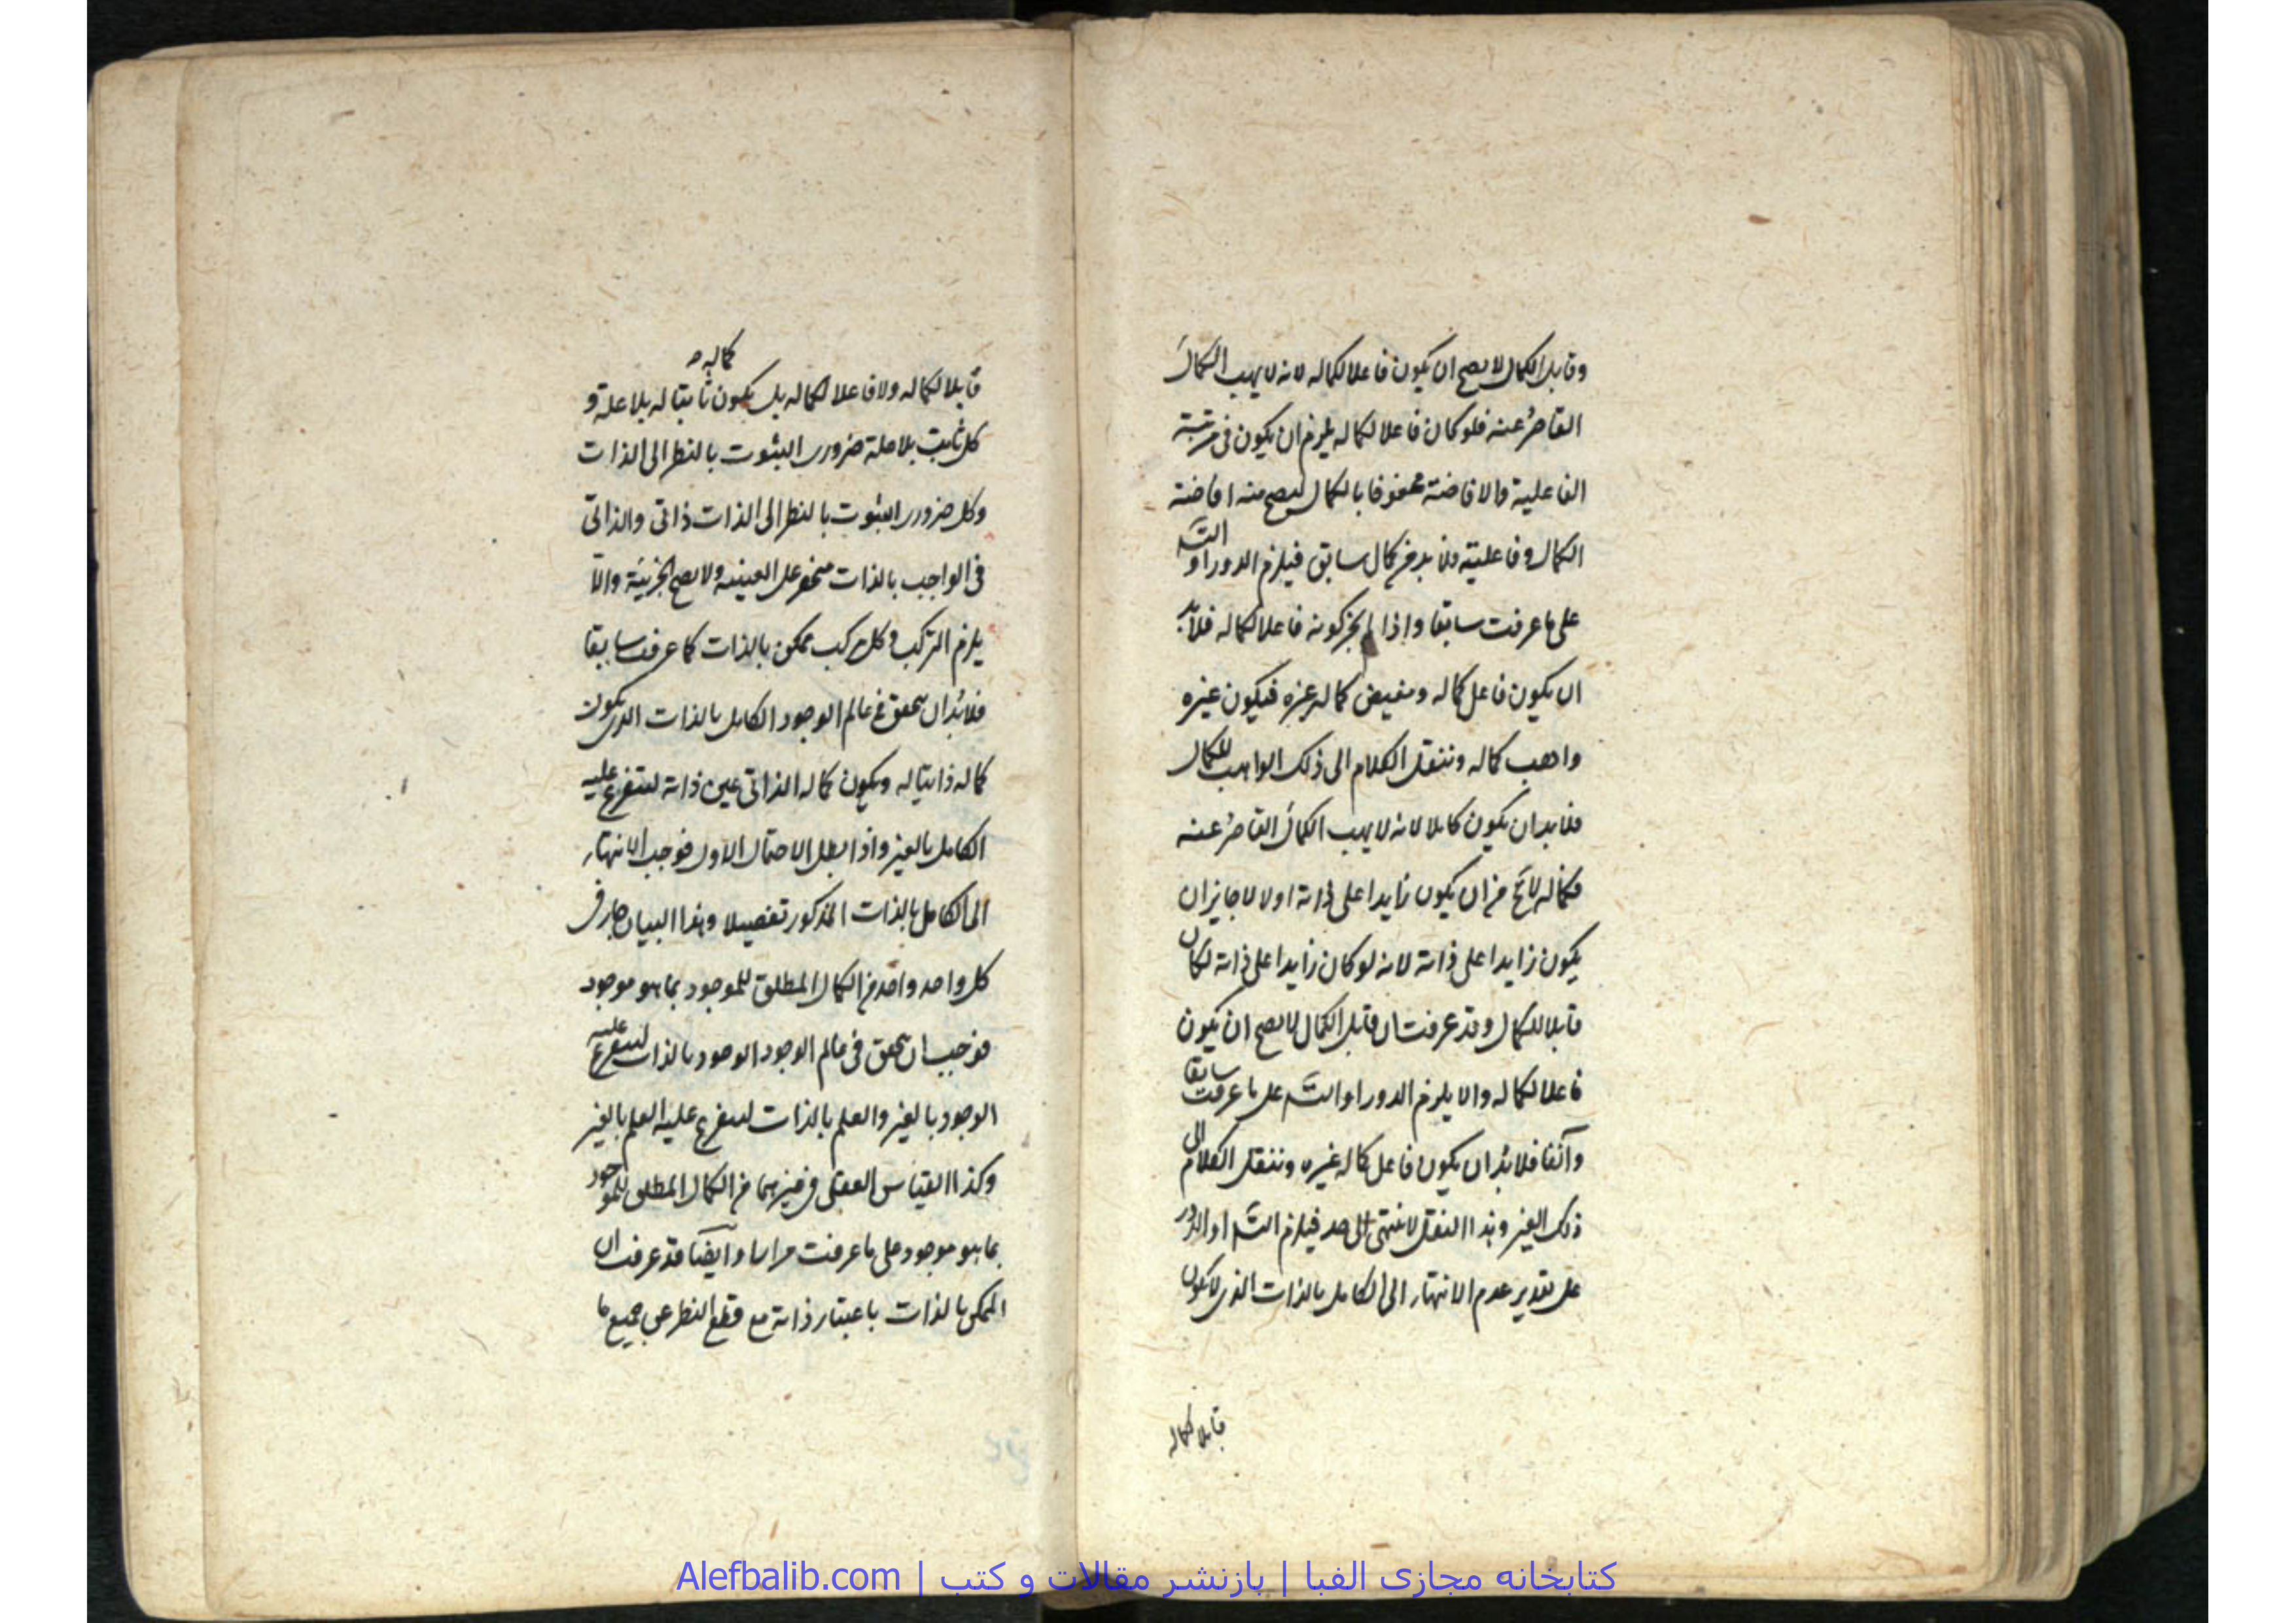 وقابل الكمال لا يصح ان يكون فاعلا لكماله لانه لا يهب الكمالَ
القاصرُ عنه فلو كان فاعلا لكماله يلزم ان يكون فى مرتبة
الفاعلية والافاضة محفوفا بالكمال ليصح منه افاضة
الكمال وفاعليته ولا بد من كمال سابق فيلزم الدور او التسَـ
على ما عرفت سابقا واذا لم يجز كونه فاعلا لكماله فلا بد
ان يكون فاعل كماله ومفيض كماله غيره فيكون غيره
واهب كماله وننقل الكلام الى ذلك الواهب للكمال
فلا بد ان يكون كاملا لانه لا يهب الكمالَ القاصرُ عنه
فكماله لا يخ من ان يكون زايدا على ذاته او لا لا جايز ان
يكون زايدا على ذاته لانه لو كان زايدا على ذاته لكان
قابلا للكمال وقد عرفت ان قابل الكمال لا يصح ان يكون
فاعلا لكماله والا يلزم الدور او التسَـ على ما عرفت سابقا
وآنفا فلا بُدّ ان يكون فاعل كماله غيره وننقل الكلام الى
ذلك الغير وهذا النقل لا ينتهى الى حد فيلزم التسَـ او الدور
على تقدير عدم الانتهاء الى الكامل بالذات الذى لا يكون
قابلا لكماله
كماله
قابلا لكماله ولا فاعلا لكماله بل يكون ثابتا له بلا علة و
كل ثابت بلا علة ضرورى الثبوت بالنظر الى الذات
وكل ضرورى الثبوت بالنظر الى الذات ذاتى والذاتى
فى الواجب بالذات منحصر على العينية ولا يصح الجزئية والّا
يلزم التركب وكل مركب ممكن بالذات كما عرفت سابقا
فلا بُدّ ان يتحقق فى عالم الوجود الكامل بالذات الذى يكون
كماله ذاتيا له ويكون كماله الذاتى عين ذاته ليتفرع عليه
الكامل بالغير واذا بطل الاحتمال الاول فوجب الانتهاء
الى الكامل بالذات المذكور تفصيلا وهذا البيان جار فى
كل واحد واحد من الكمال المطلق للموجود بما هو موجود
فوجب ان يتحقق فى عالم الوجود الوجود بالذات ليتفرع عليه
الوجود بالغير والعلم بالذات ليتفرع عليه العلم بالغير
وكذا القياس العقلى فى غيرهما من الكمال المطلق للموجود
بما هو موجود على ما عرفت مرارا وآيضا قد عرفت ان
الممكن بالذات باعتبار ذاته مع قطع النظر عن جميع ما
كتابخانه مجازى الفبا | بازنشر مقالات و كتب | Alefbalib.com